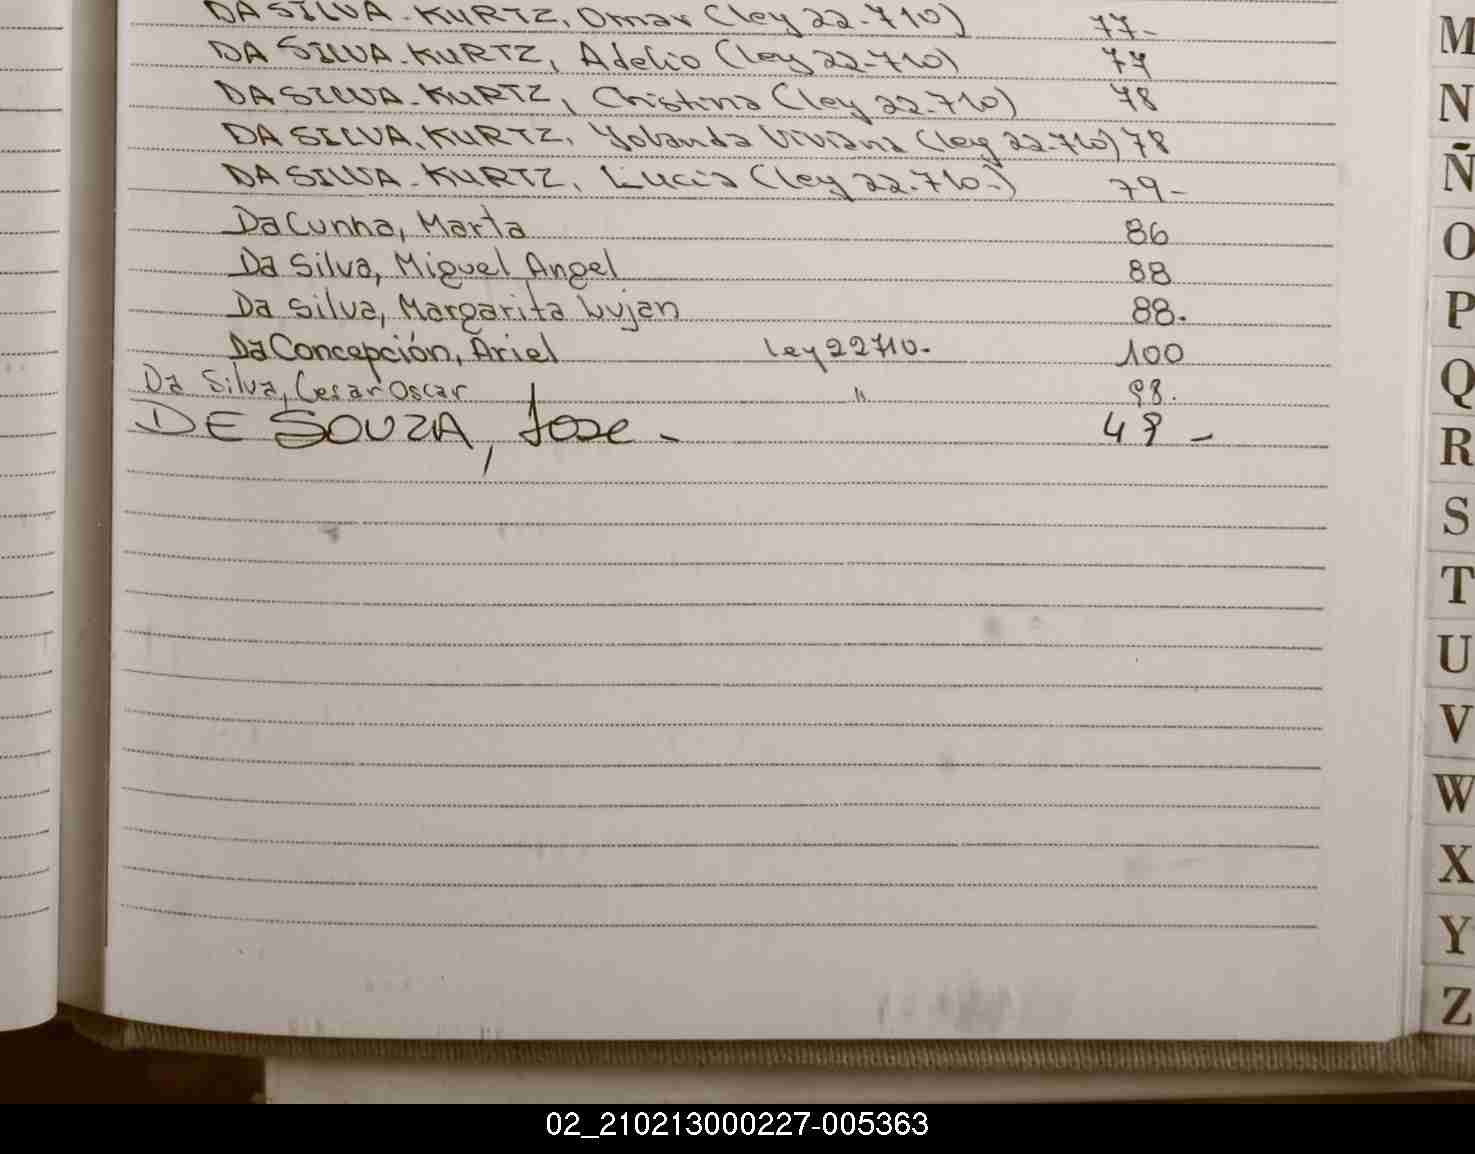 DA SILVA-KURTZ, Omar (ley 22.710) 77-
DA SILVA-KURTZ, Adelio (ley 22.710) 77
DA SILVA-KURTZ, Cristina (ley 22.710) 78
DA SILVA-KURTZ, Yolanda Viviana (ley 22.710) 78
DA SILVA-KURTZ, Lucia (ley 22.710-) 79-
Da Cunha, Marta 86
Da Silva, Miguel Angel 88
Da Silva, Margarita Lujan 88.
Da Concepción, Ariel ley 22710- 100
Da Silva, Cesar Oscar " 98.
DE SOUZA, Jose - 49 -
M
N
Ñ
O
P
Q
R
S
T
U
V
W
X
Y
Z
02_210213000227-005363